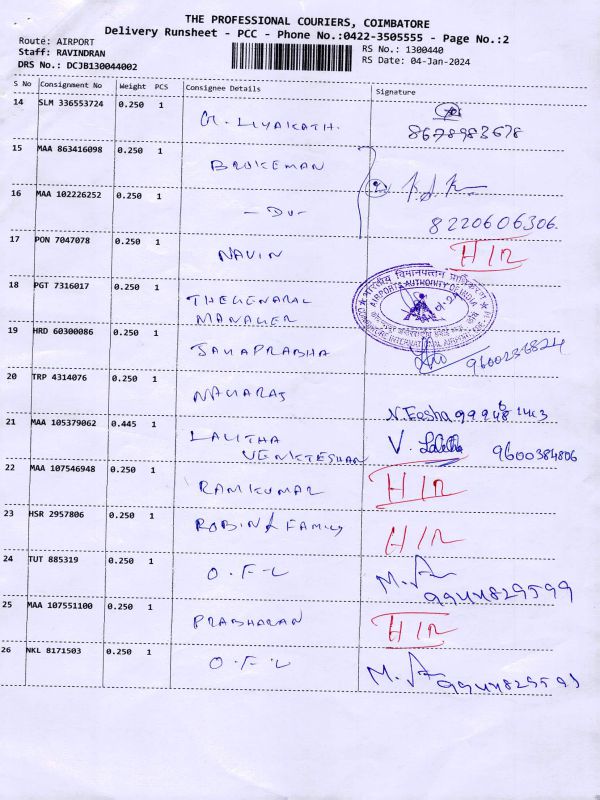 THE PROFESSIONAL COURIERS, COIMBATORE
Delivery Runsheet - PCC - Phone No.:0422-3505555 - Page No.:2
Route: AIRPORT
Staff: RAVINDRAN
DRS No.: DCJB130044002
RS No.: 1300440
RS Date: 04-Jan-2024
S No Consignment No Weight PCS Consignee Details Signature
14 SLM 336553724 0.250 1 G. LIYAKATH.
8678983678
15 MAA 863416098 0.250 1 BROKEMAN
16 MAA 102226252 0.250 1 - DO -
8220606306.
17 PON 7047078 0.250 1 NAVIN H/R
18 PGT 7316017 0.250 1 THEGENARAL
MANAGER
भारतीय विमानपत्तन प्राधिकरण
AIRPORTS AUTHORITY OF INDIA
19 HRD 60300086 0.250 1 JAYAPRABHA
9600236824
20 TRP 4314076 0.250 1 NAGARAJ N. Eesha
21 MAA 105379062 0.445 1 LALITHA
VENKTESHAN V. Lalitha 9600384806
22 MAA 107546948 0.250 1 RAMKUMAR H/R
23 HSR 2957806 0.250 1 ROBIN & FAMILY H/R
24 TUT 885319 0.250 1 O.F.L M.
9944829599
25 MAA 107551100 0.250 1 PRABHARAN H/R
26 NKL 8171503 0.250 1 O.F.L M. 9944829599